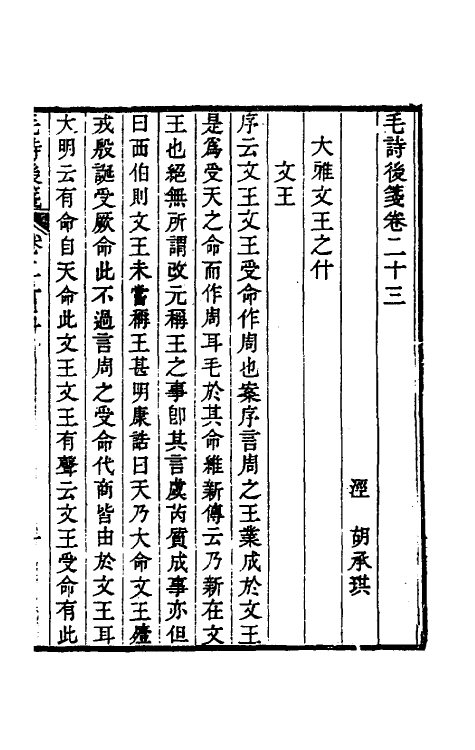 毛詩後箋卷二十三
涇　胡承珙
大雅文王之什
文王
序云文王文王受命作周也案序言周之王業成於文王
是爲受天之命而作周耳毛於其命維新傳云乃新在文
王也絕無所謂改元稱王之事卽其言虞芮質成事亦但
曰西伯則文王未嘗稱王甚明康誥曰天乃大命文王殪
戎殷誕受厥命此不過言周之受命代商皆由於文王耳
大明云有命自天命此文王文王有聲云文王受命有此
毛詩後箋